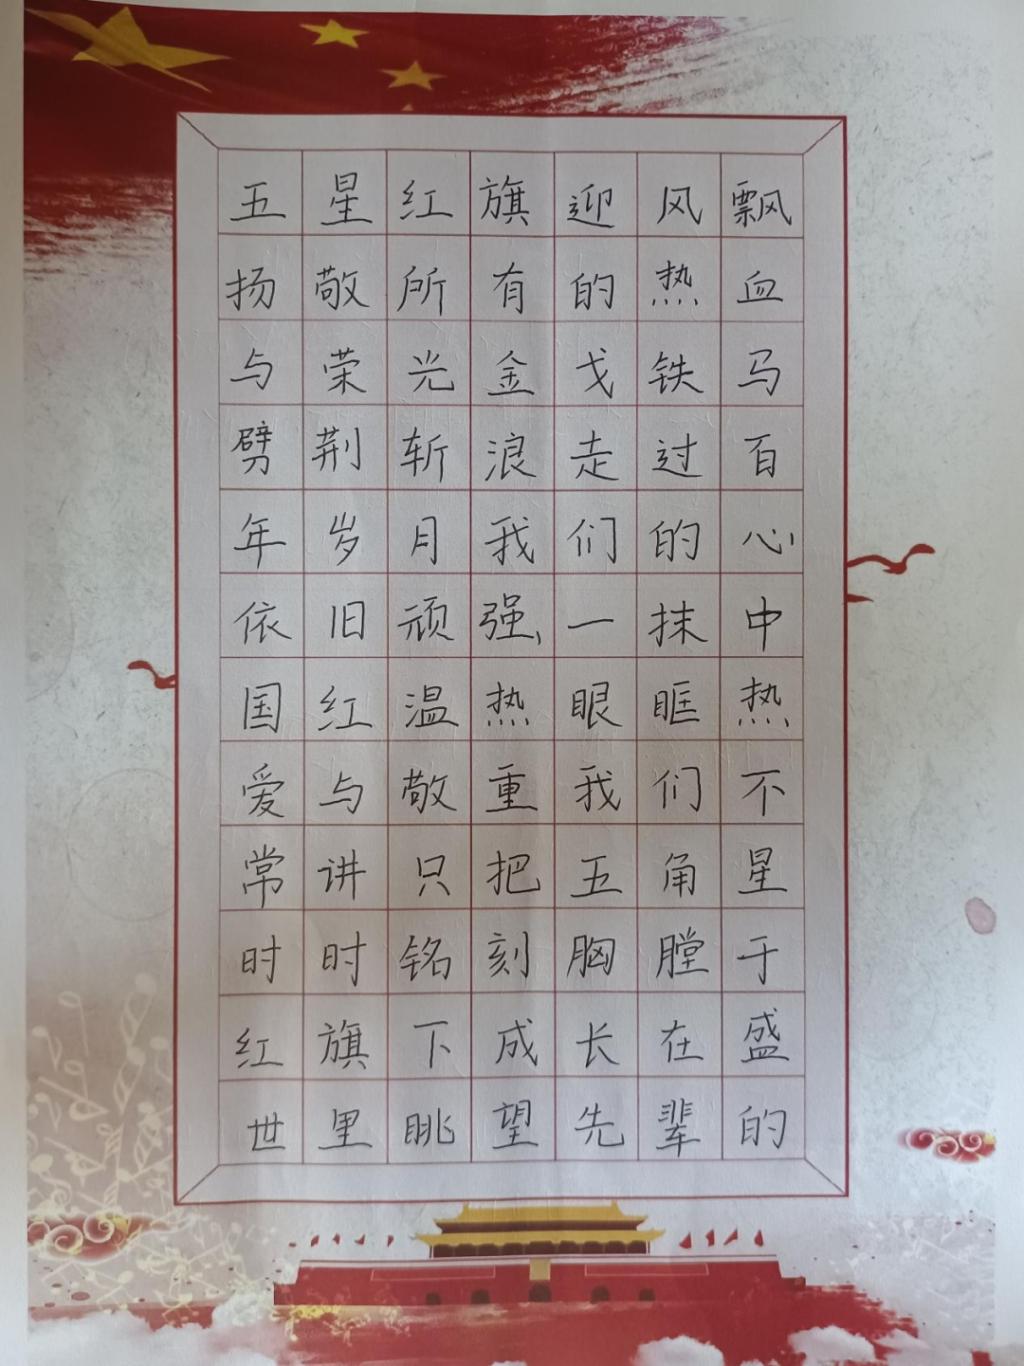 五星红旗迎风飘
扬敬所有的热血
与荣光金戈铁马
劈荆斩浪走过百
年岁月我们的心
依旧顽强、一抹中
国红温热眼眶热
爱与敬重我们不
常讲只把五角星
时时铭刻胸膛于
红旗下成长在盛
世里眺望先辈的